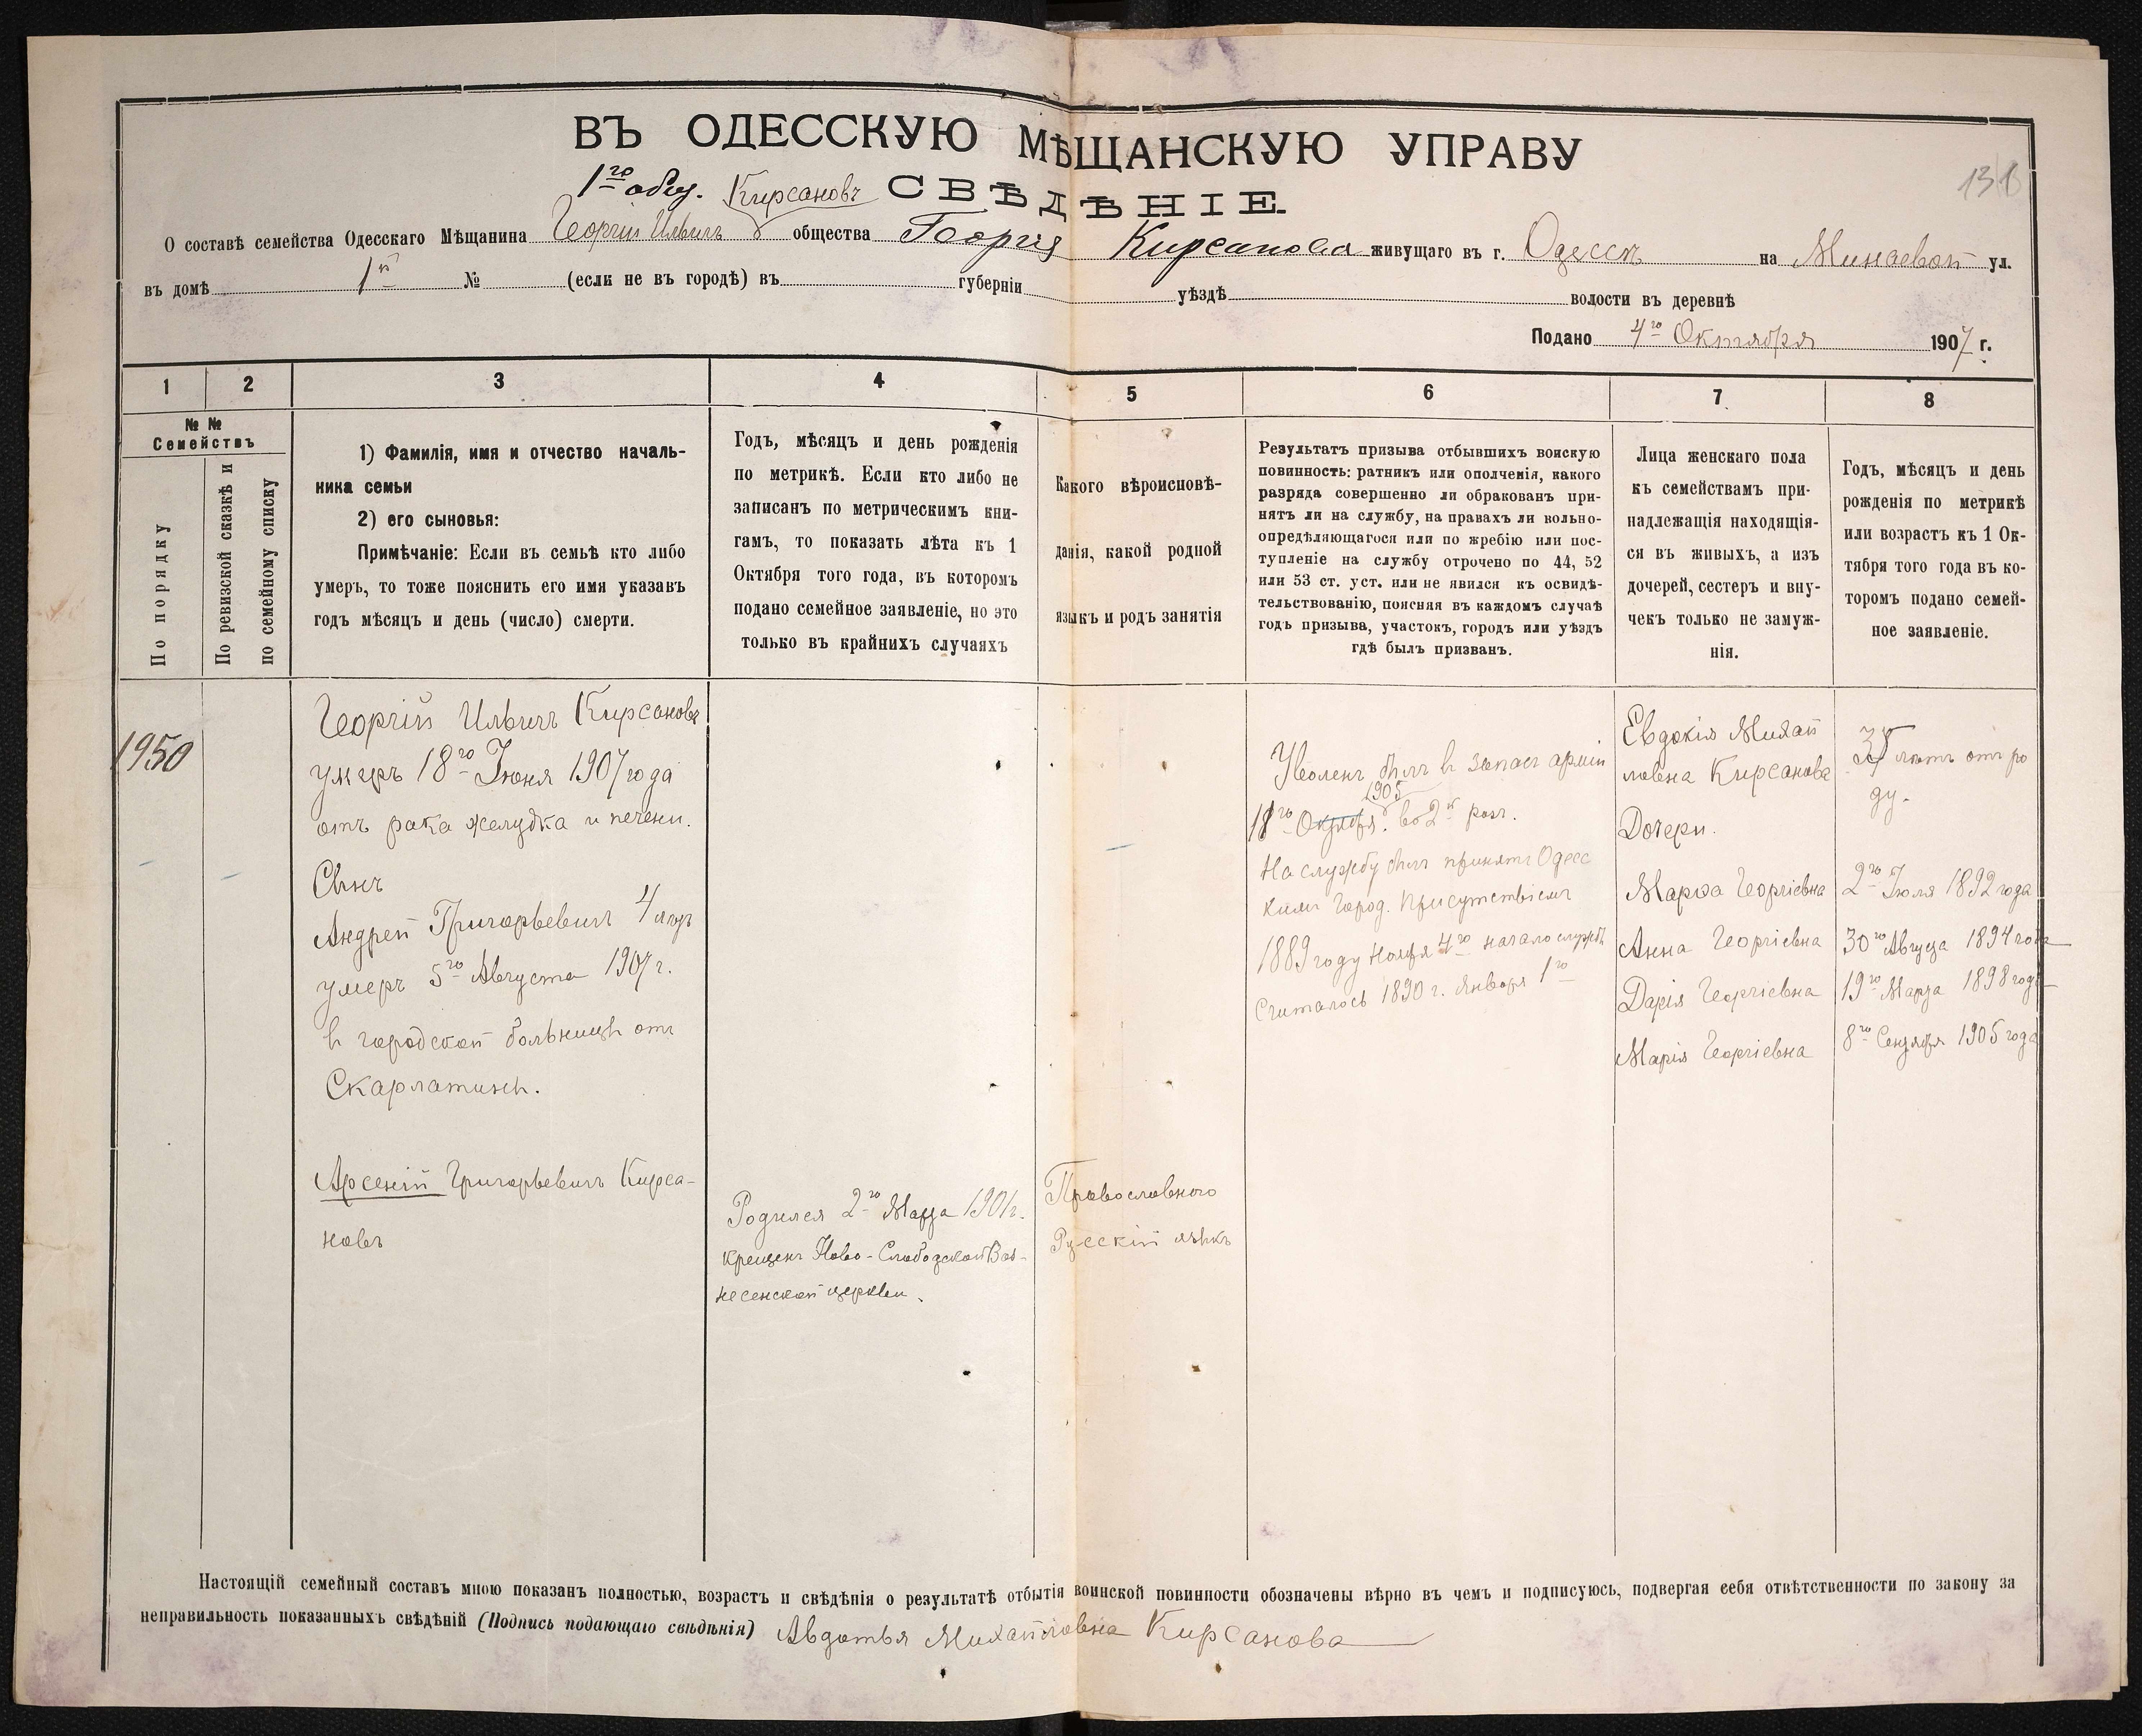 ВЪ ОДЕССКУЮ МѢЩАНСКУЮ УПРАВУ
1го общ. Кирсановъ СВѢДѢНІЕ.
О составѣ семейства Одесскаго Мѣщанина Георгій Ильичъ общества Георгія Кирсанова живущаго въ г. Одессѣ на Минаевой ул.
въ домѣ 1й № (если не въ городѣ) въ губерніи уѣздѣ волости въ деревнѣ
Подано 4го Октября 1907 г.
1 2 3 4 5 6 7 8
№ №
Семействъ
По порядку
По ревизской сказкѣ и
по семейному списку
1) Фамилія, имя и отчество началь-
ника семьи
2) его сыновья:
Примѣчаніе: Если въ семьѣ кто либо
умеръ, то тоже пояснить его имя указавъ
годъ мѣсяцъ и день (число) смерти.
Годъ, мѣсяцъ и день рожденія
по метрикѣ. Если кто либо не
записанъ по метрическимъ кни-
гамъ, то показать лѣта къ 1
Октября того года, въ которомъ
подано семейное заявленіе, но это
только въ крайнихъ случаяхъ
Какого вѣроисповѣ-
данія, какой родной
языкъ и родъ занятія
Результатъ призыва отбывшихъ воискую
повинность: ратникъ или ополченія, какого
разряда совершенно ли обракованъ при-
нятъ ли на службу, на правахъ ли вольно-
опредѣляющагося или по жребію или пос-
тупленіе на службу отрочено по 44, 52
или 53 ст. уст. или не явился къ освидѣ-
тельствованію, поясняя въ каждомъ случаѣ
годъ призыва, участокъ, городъ или уѣздъ
гдѣ былъ призванъ.
Лица женскаго пола
къ семействамъ при-
надлежащія находящія-
ся въ живыхъ, а изъ
дочерей, сестеръ и вну-
чекъ только не замуж-
нія.
Годъ, мѣсяцъ и день
рожденія по метрикѣ
или возрастъ къ 1 Ок-
тября того года въ ко-
торомъ подано семей-
ное заявленіе.
1950
Георгій Ильичъ Кирсановъ
умеръ 18го Іюня 1907 года
отъ рака желудка и печени.
Сынъ
Андрей Григорьевичъ 4 лѣтъ
умеръ 5го Августа 1907 г.
в городской больницѣ отъ
Скарлатинѣ.
Арсеній Григорьевичъ Кирса-
новъ
Родился 2го Марта 1901 г.
крещенъ Ново-Слободской Воз-
несенской церкви.
Православного
Русскій языкъ
Уволенъ былъ в запасъ арміи
1905
18го Октября. во 2й разъ.
На службу былъ принятъ Одесс
кимъ Город. Присутствіемъ
1889 году Ноября 4го начало службѣ
Считалось 1890 г. Января 1го
Евдокія Михай
ловна Кирсанова
Дочери.
Марфа Георгіевна
Анна Георгіевна
Дарія Георгіевна
Марія Георгіевна
35 лѣтъ отъ ро
ду.
2го Іюля 1892 года
30го Августа 1894 года
19го Марта 1898 года
8го Сентября 1905 года
Настоящій семейный составъ мною показанъ полностью, возрастъ и свѣдѣнія о результатѣ отбытія воинской повинности обозначены вѣрно въ чемъ и подписуюсь, подвергая себя отвѣтственности по закону за
неправильность показанныхъ свѣдѣній (Подпись подающаго свѣдѣнія) Авдотья Михайловна Кирсанова